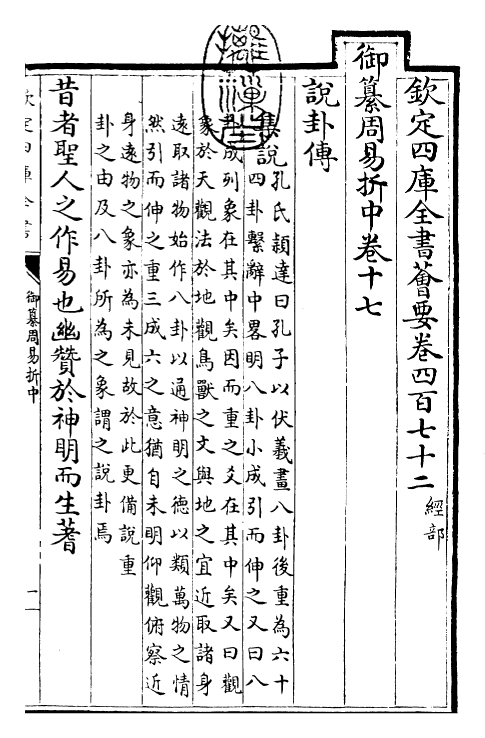 欽定四庫全書薈要卷四百七十二 經部
御纂周易折中卷十七
說卦傳
集說孔氏頴達曰孔子以伏羲畫八卦後重為六十
四卦繫辭中畧明八卦小成引而伸之又曰八
卦成列象在其中矣因而重之爻在其中矣又曰觀
象於天觀法於地觀鳥獸之文與地之宜近取諸身
遠取諸物始作八卦以通神明之德以類萬物之情
然引而伸之重三成六之意猶自未明仰觀俯察近
身遠物之象亦為未見故於此更備說重
卦之由及八卦所為之象謂之說卦焉
昔者聖人之作易也幽贊於神明而生蓍
欽定四庫全書
御纂周易折中
一